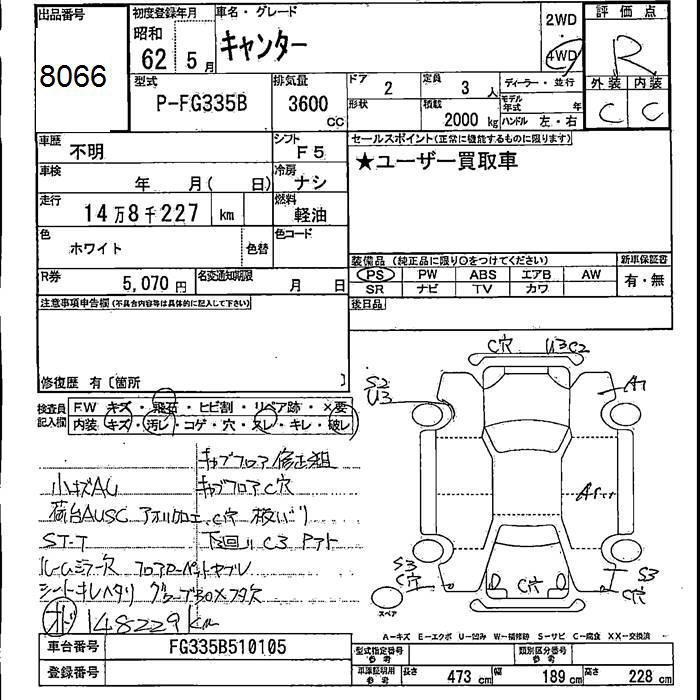 出品番号
8066
初度登録年月
昭和
62 5月
車名・グレード
キャンター
2WD
4WD
評価点
R
型式
P-FG335B
排気量
3600 cc
ドア
2
定員
3 人
ディーラー・並行
外装 内装
C C
形状
積載
2000 kg
モデル年式 年
ハンドル 左・右
車歴
不明
シフト
F5
セールスポイント(正常に機能するものに限ります)
★ユーザー買取車
車検
年 月( 日)
冷房
ナシ
走行
14万8千227 km
燃料
軽油
色
ホワイト
色替
色コード
装備品 (純正品に限り○をつけてください)
新車保証書
PS PW ABS エアB AW
有・無
SR ナビ TV カワ
R券
5,070円
名変通知期限
月 日
後日品
注意事項申告欄(不具合内容等は具体的に記入して下さい)
修復歴 有〔箇所 〕
検査員記入欄
F.W キズ・飛石・ヒビ割・リペア跡・×要
内装・キズ・汚レ・コゲ・穴・スレ・キレ・破レ
キャブフロア修正粗
小キズAU
キャブフロアC穴
荷台AUSC アオリ加工
C穴
ST-T
下回りC3
ルームミラー欠
シートキレヘタリ
148229km
C穴 U3C2
S2
U3
A1
S3
C穴
C穴
S3
C穴
スペア
A-キズ E-エクボ U-凹み W-補修跡 S-サビ C-腐食 XX-交換済
車台番号
FG335B510105
型式指定番号 参考
類別区分番号 参考
登録番号
車庫証明用 参考
長さ 473 cm 幅 189 cm 高さ 228 cm